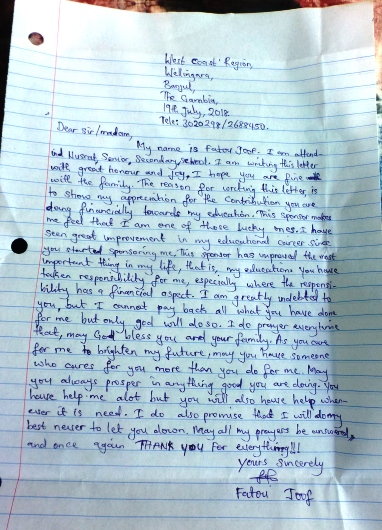 West Coast Region,
Wellingara,
Banjul,
The Gambia,
19th July, 2018
Tele: 3020298/2688450.
Dear Sir/madam,
My name is Fatou Joof. I am attend-
ind Nusrat, Senior, Secondary, school. I am writing this letter
with great honour and joy. I hope you are fine
with the family. The reason for writing this letter is
to show my appreciation for the contribution you are
doing financially towards my education. This sponsor makes
me feel that I am one of those lucky ones. I have
seen great improvement in my educational career since
you started sponsoring me. This sponsor has improved the most
important thing in my life, that is, my education. You have
taken responsibility for me, especially where the responsi-
bility has a financial aspect. I am greatly indebted to
you, but I cannot pay back all what you have done
for me but only god will do so. I do prayer everytime
that, may God bless you and your family. As you care
for me to brighten my future, may you have someone
who cares for you more than you do for me. May
you always prosper in anything good you are doing. You
have help me alot but you will also have help when-
ever it is need. I do also promise that I will do my
best never to let you down. May all my prayers be answered,
and once again THANK YOU For everything!!!
Yours Sincerely
Fatou Joof